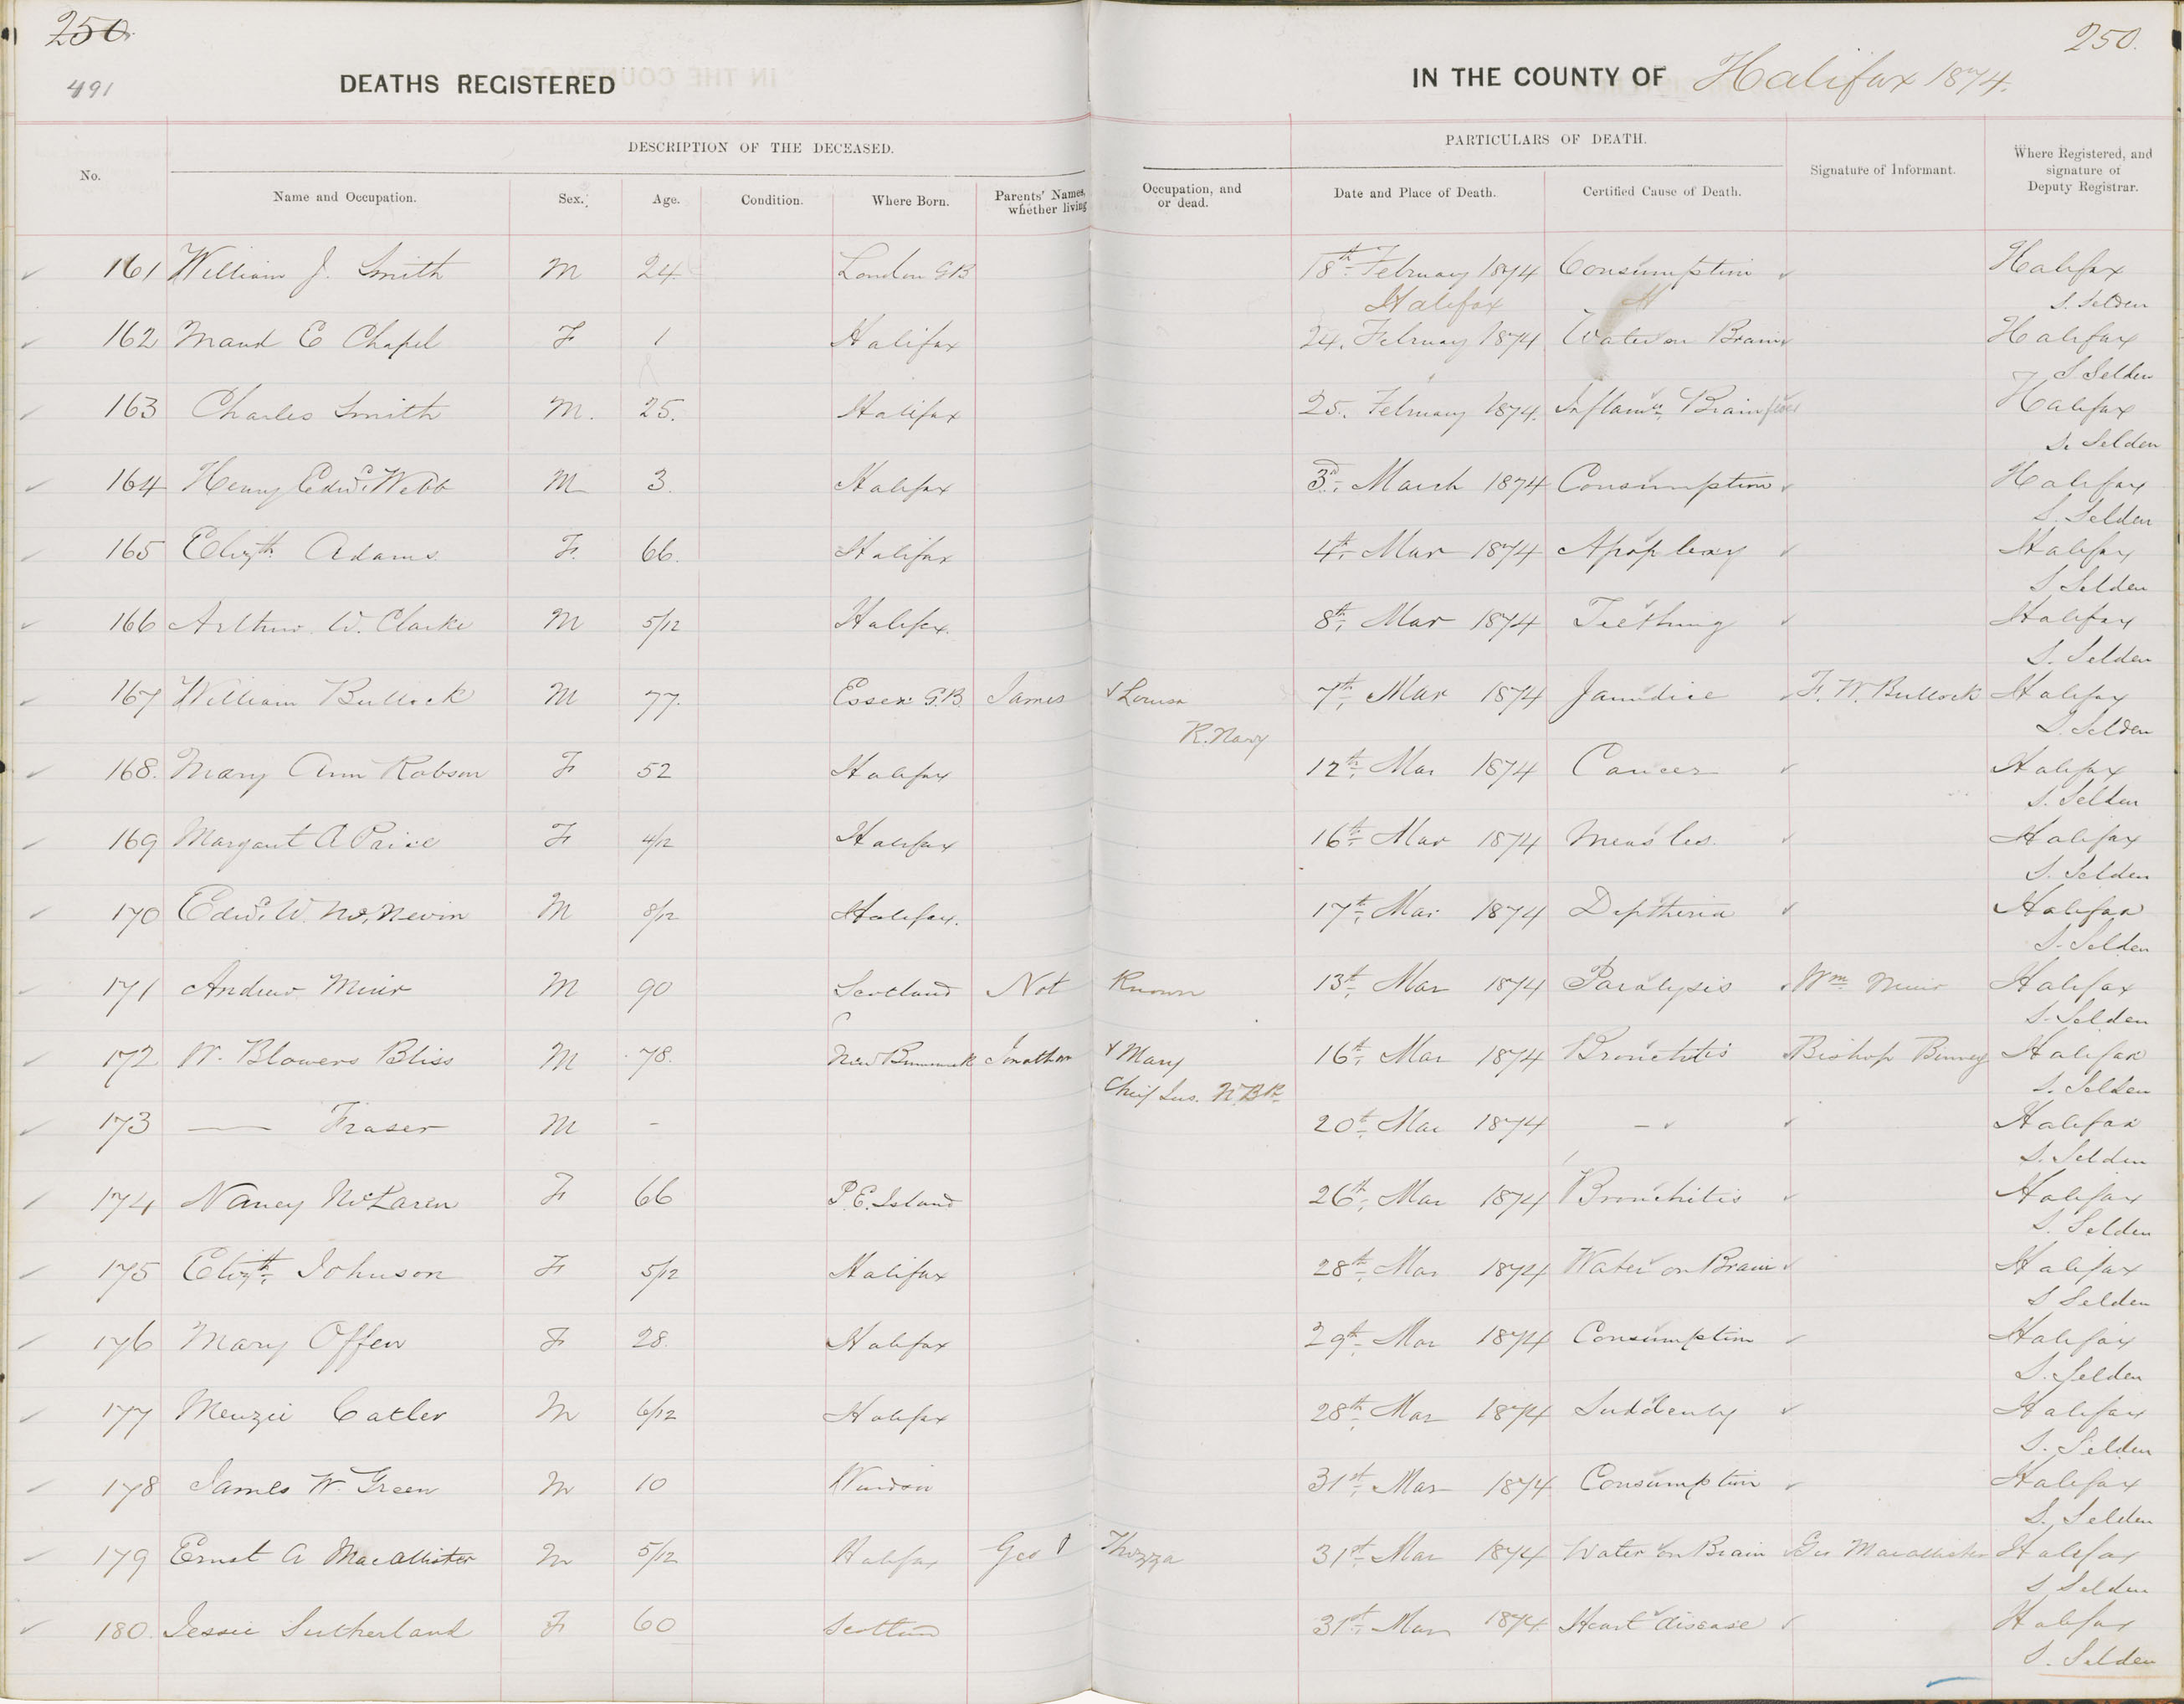 250. 250.
491 DEATHS REGISTERED IN THE COUNTY OF Halifax 1874.
DESCRIPTION OF THE DECEASED. PARTICULARS OF DEATH.
No. Name and Occupation. Sex. Age. Condition. Where Born. Parents' Names, whether living Occupation, and or dead. Date and Place of Death. Certified Cause of Death. Signature of Informant. Where Registered, and signature of Deputy Registrar.
161 William J. Smith M 24 London G B 18th February 1874 Consumption Halifax
Halifax S. Selden
162 Maud E Chapel F 1 Halifax 24. February 1874 Water on Brain Halifax
S. Selden
163 Charles Smith M. 25. Halifax 25. February 1874. Inflamn Brain fever Halifax
S. Selden
164 Henry Edwd Webb M 3. Halifax 3d March 1874 Consumption Halifax
S. Selden
165 Elizth Adams F. 66. Halifax 4th Mar 1874 Apoplexy Halifax
S Selden
166 Arthur W. Clarke M 5/12 Halifax. 8th Mar 1874 Teething Halifax
S. Selden
167 William Bullock M 77. Essex G.B. James & Louisa 7th Mar 1874 Jaundice F. W. Bullock Halifax
R. Navy S. Selden
168. Mary Ann Robson F 52 Halifax 12th Mar 1874 Cancer Halifax
S. Selden
169 Margaret A Price F 4/12 Halifax 16th Mar 1874 Measles. Halifax
S. Selden
170 Edwd W. McNevin M 8/12 Halifax. 17th Mar 1874 Diptheria Halifax
S. Selden
171 Andrew Muir M 90 Scotland Not Known 13th Mar 1874 Paralysis Wm Muir Halifax
S. Selden
172 W. Blowers Bliss M 78. New Brunswick Jonathan & Mary 16th Mar 1874 Bronchitis Bishop Binney Halifax
Chief Jus. N. BK S. Selden
173 — Fraser M - 20th Mar 1874 - Halifax
S. Selden
174 Nancy McLaren F 66 P. E. Island 26th Mar 1874 Bronchitis Halifax
S. Selden
175 Elizth Johnson F 5/12 Halifax 28th Mar 1874 Water on Brain Halifax
S Selden
176 Mary Offen F 28. Halifax 29th Mar 1874 Consumption Halifax
S. Selden
177 Menzie Catler M 6/12 Halifax 28th Mar 1874 Suddenly Halifax
S. Selden
178 James W. Green M 10 Windsor 31st Mar 1874 Consumption Halifax
S. Selden
179 Ernst A Macallister M 5/12 Halifax Geo & Thozza 31st Mar 1874 Water on Brain Geo Macallister Halifax
S Selden
180. Jessie Sutherland F 60 Scotland 31st Mar 1874 Heart disease Halifax
S. Selden